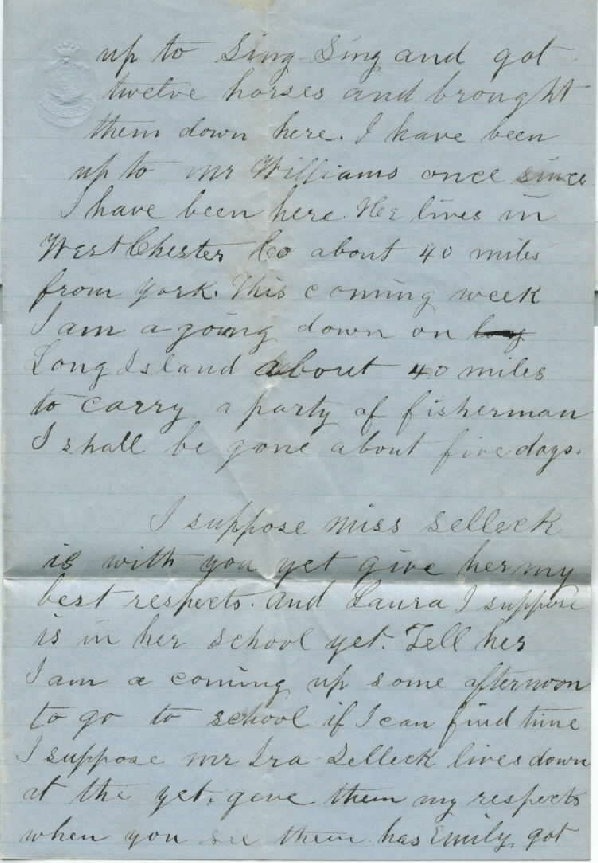 up to Sing Sing and got
twelve horses and brought
them down here. I have been
up to mr Williams once since
I have been here. He lives in
WestChester Co about 40 miles
from york. This coming week
I am a going down on
Long Island about 40 miles
to carry a party of fisherman
I shall be gone about five days.
I suppose miss Selleck
is with you yet give her my
best respects. And Laura I suppose
is in her school yet. Tell her
I am a coming up some afternoon
to go to school if I can find time
I suppose mr Ira Selleck lives down
at the yet. geve them my respects
when you see them has Emily got